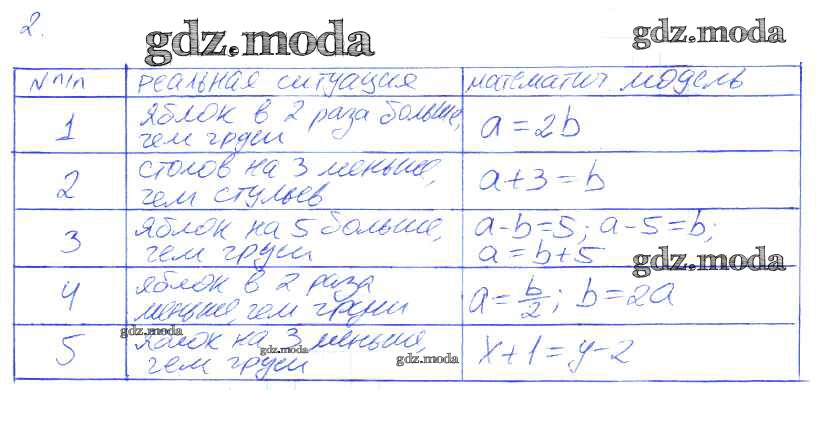 2.
gdz.moda
gdz.moda
N п/п реальная ситуация математич. модель
1 яблок в 2 раза больше, a = 2b
чем груш
2 столов на 3 меньше, a + 3 = b
чем стульев
3 яблок на 5 больше, a-b=5; a-5=b;
чем груш a = b+5
gdz.moda
4 яблок в 2 раза a = b/2; b = 2a
меньше, чем груш
gdz.moda
5 яблок на 3 меньше, x+1 = y-2
чем груш
gdz.moda
gdz.moda